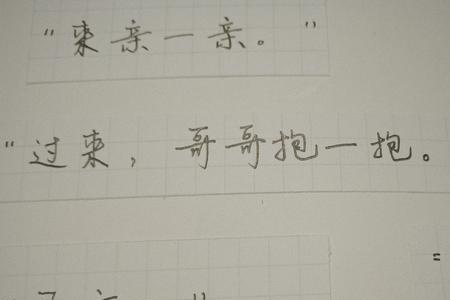 "来亲一亲。"
"过来,哥哥抱一抱。